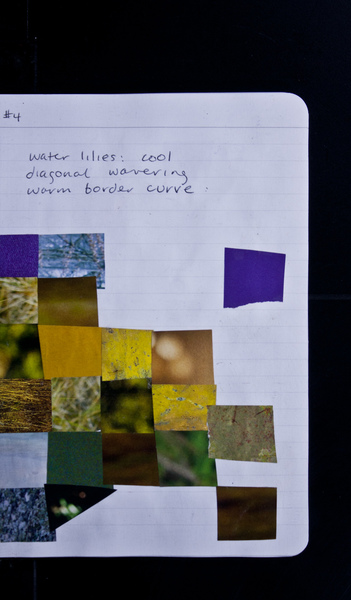 #4
water lilies: cool
diagonal wavering
warm border curve